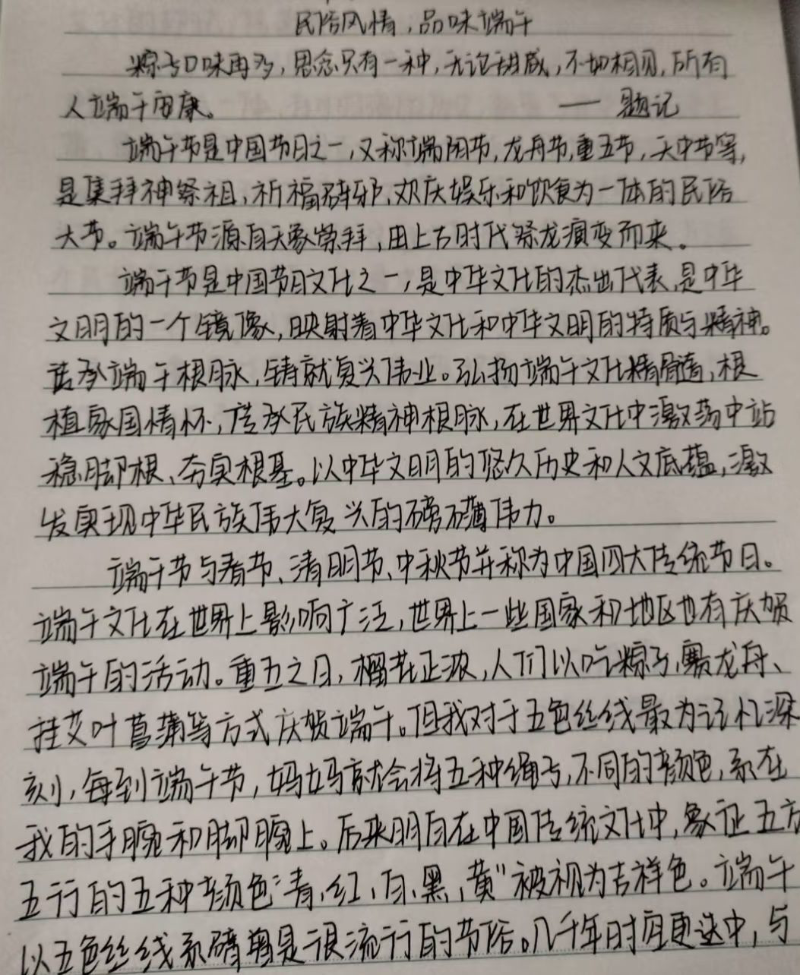 民俗风情，品味端午
粽子口味再多，思念只有一种，无论甜咸，不如相见，所有
人端午安康。 —— 题记
端午节是中国节日之一，又称端阳节，龙舟节，重五节，天中节等，
是集拜神祭祖，祈福辟邪，欢庆娱乐和饮食为一体的民俗
大节。端午节源自天象崇拜，由上古时代祭龙演变而来。
端午节是中国节日文化之一，是中华文化的杰出代表，是中华
文明的一个镜像，映射着中华文化和中华文明的特质与精神。
传承端午根脉，铸就复兴伟业。弘扬端午文化精髓，根
植家国情怀，传承民族精神根脉，在世界文化中激荡中站
稳脚根、夯实根基。以中华文明的悠久历史和人文底蕴，激
发实现中华民族伟大复兴的磅礴伟力。
端午节与春节、清明节、中秋节并称为中国四大传统节日。
端午文化在世界上影响广泛，世界上一些国家和地区也有庆贺
端午的活动。重五之日，榴花正浓，人们以吃粽子，赛龙舟、
挂艾叶菖蒲等方式庆贺端午。但我对于五色丝线最为记忆深
刻，每到端午节，妈妈就会将五种绳子，不同的颜色，系在
我的手腕和脚腕上。后来明白在中国传统文化中，象征五方
五行的五种颜色“青，红，白，黑，黄”被视为吉祥色。端午
以五色丝线系臂是很流行的节俗。几千年时间更迭中，与